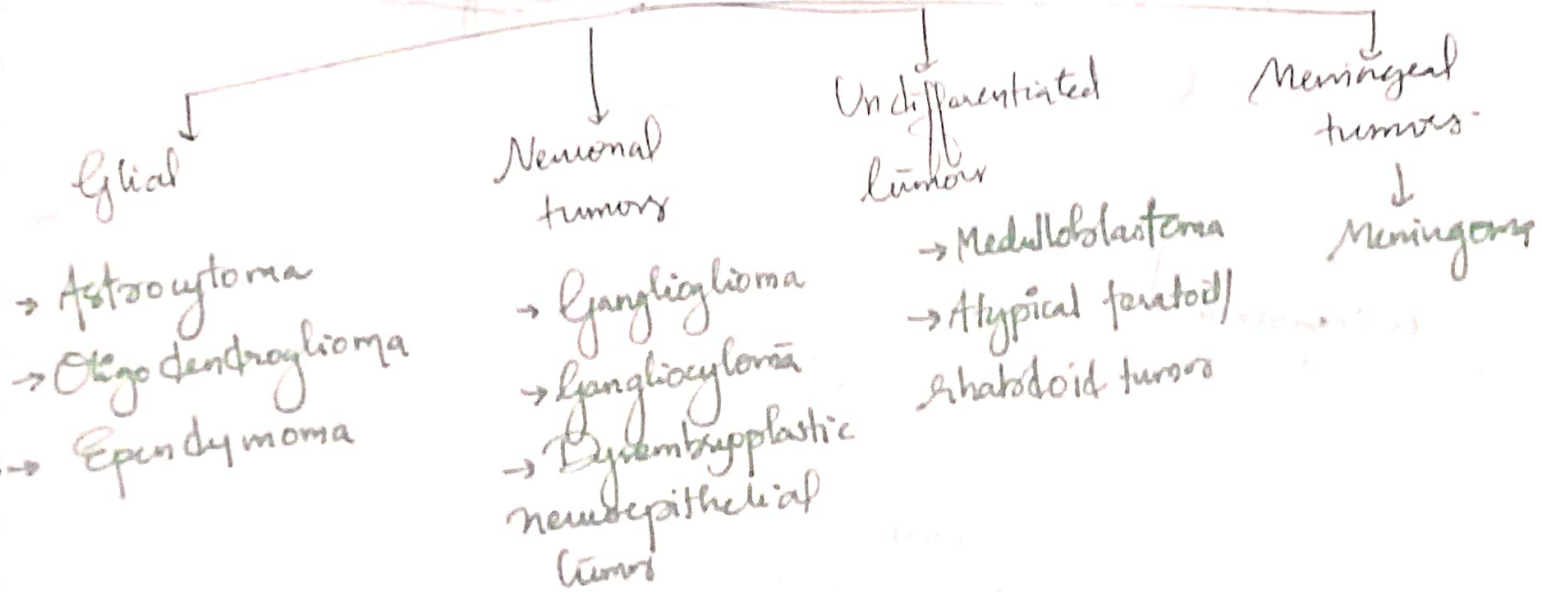 Glial
→ Astrocytoma
→ Oligodendroglioma
→ Ependymoma
Neuronal
tumors
→ Ganglioglioma
→ Gangliocytoma
→ Dysembryoplastic
neuroepithelial
tumor
Undifferentiated
tumors
→ Medulloblastoma
→ Atypical teratoid/
rhabdoid tumor
Meningeal
tumors.
Meningoma